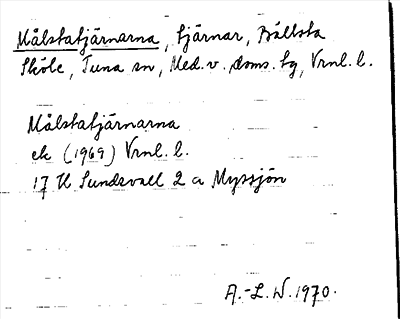 Målstatjärnarna, tjärnar, Bällsta
Sköle, Tuna sn, Med. v. doms. tg, Vrnl. l.
Målstatjärnarna
ek (1969) Vrnl. l.
17 H Sundsvall 2 a Myssjön
A.-L. W. 1970.